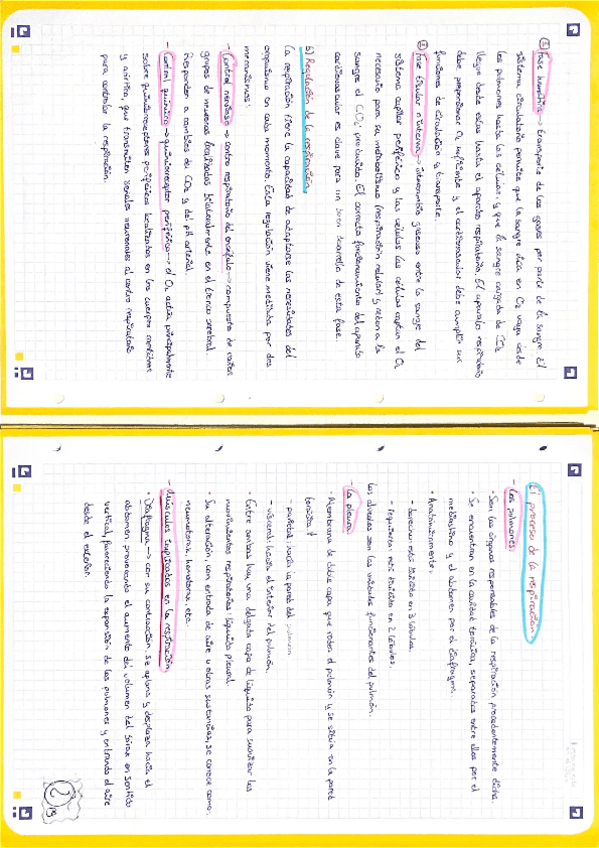 ③ Fase hemática → transporte de los gases por parte de la sangre. El
sistema circulatorio permite que la sangre rica en O₂ viaje desde
los pulmones hasta las células, y que la sangre cargada de CO₂
llegue desde estas hasta el aparato respiratorio. El aparato respiratorio
debe proporcionar O₂ suficiente y el cardiovascular debe cumplir sus
funciones de circulación y transporte.
Fase tisular o interna → intercambio gaseoso entre la sangre del
sistema capilar periférico y las células. Las células captan el O₂
necesario para su metabolismo (respiración celular) y ceden a la
sangre el CO₂ producido. El correcto funcionamiento del aparato
cardiovascular es clave para un buen desarrollo de esta fase.
b) Regulación de la respiración:
La respiración tiene la capacidad de adaptarse las necesidades del
organismo en cada momento. Esta regulación viene mediada por dos
mecanismos:
- Control nervioso → centro respiratorio del encéfalo → compuesto de varios
grupos de neuronas localizados bilateralmente en el tronco cerebral.
Responden a cambios de CO₂ y del pH arterial.
- Control químico → quimiorreceptor periférico → el O₂ actúa principalmente
sobre quimiorreceptores periféricos localizados en los cuerpos carotídeos
y aórtico, que transmiten señales neuronales al centro respiratorio
para controlar la respiración.
El proceso de la respiración
- Los pulmones:
· Son los órganos responsables de la respiración procedentemente dicha.
· Se encuentran en la cavidad torácica, separados entre ellos por el
mediastino y el abdomen por el diafragma.
· Anatómicamente:
- derecho: está dividido en 3 lóbulos.
- izquierdo: está dividido en 2 lóbulos.
Los alveolos son las unidades funcionantes del pulmón.
- La pleura:
· Membrana de doble capa que rodea el pulmón y se sitúa en la pared
torácica
- parietal: hacia la pared del pulmón
- visceral: hacia el interior del pulmón.
· Entre ambas hay una delgada capa de líquido para suavizar los
movimientos respiratorios: líquido pleural.
· Su alteración, con entrada de aire u otras sustancias, se conoce como:
neumotórax, hemotórax, etc.
- Músculos implicados en la respiración
· Diafragma → con su contracción, se aplana y desplaza hacia el
abdomen, provocando el aumento del volumen del tórax en sentido
vertical, favoreciendo la expansión de los pulmones y entrando el aire
desde el exterior.
2/13